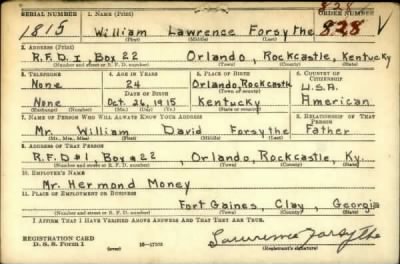 SERIAL NUMBER 1. NAME (Print) ORDER NUMBER
828
1815 William Lawrence Forsythe 828 V
(First) (Middle) (Last)
2. ADDRESS (Print)
R.F.D 1 Box 22 Orlando, Rockcastle, Kentucky
(Number and street or R. F. D. number) (Town) (County) (State)
3. TELEPHONE 4. AGE IN YEARS 5. PLACE OF BIRTH 6. COUNTRY OF CITIZENSHIP
None 24 Orlando, Rockcastle U.S.A.
DATE OF BIRTH (Town) (County)
None Oct. 26, 1915 Kentucky American
(Exchange) (Number) (Mo.) (Day) (Yr.) (State or country)
7. NAME OF PERSON WHO WILL ALWAYS KNOW YOUR ADDRESS 8. RELATIONSHIP OF THAT PERSON
Mr. William David Forsythe Father
(Mr., Mrs., Miss) (First) (Middle) (Last)
9. ADDRESS OF THAT PERSON
R.F.D #1, Box #22, Orlando, Rockcastle, Ky.
(Number and street or R. F. D. number) (Town) (County) (State)
10. EMPLOYER'S NAME
Mr. Hermond Money
11. PLACE OF EMPLOYMENT OR BUSINESS
Fort Gaines, Clay, Georgia
(Number and street or R. F. D. number) (Town) (County) (State)
I AFFIRM THAT I HAVE VERIFIED ABOVE ANSWERS AND THAT THEY ARE TRUE.
REGISTRATION CARD
D. S. S. Form 1 (over) Lawrence Forsythe
(Registrant's signature)